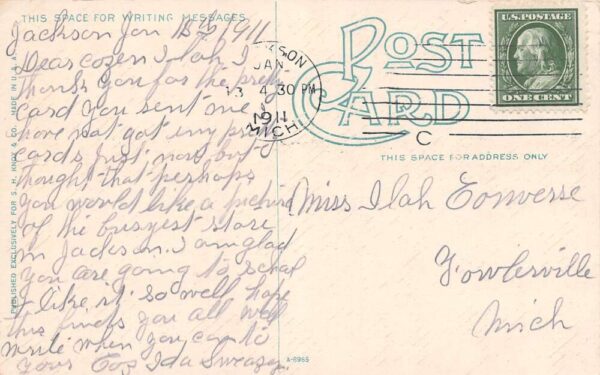 THIS SPACE FOR WRITING MESSAGES
Jackson Jan 13th 1911
Dear cozen Ilah I
thank you for the prety
card you sent me I
have not got iny prity
cards just now but
thought that perhaps
you would like a picture
of the buyest store
in Jackson. I am glad
you are going to school
& like it so well hope
this finds you all well
write when you can to
your Coz Ida
PUBLISHED EXCLUSIVELY FOR S. H. KNOX & CO. MADE IN U.S.A.
POST
CARD
JACKSON
JAN
13 4 30 PM
1911
MICH.
C
U.S. POSTAGE
ONE CENT
THIS SPACE FOR ADDRESS ONLY
Miss Ilah Converse
Fowlerville
Mich
A-6965